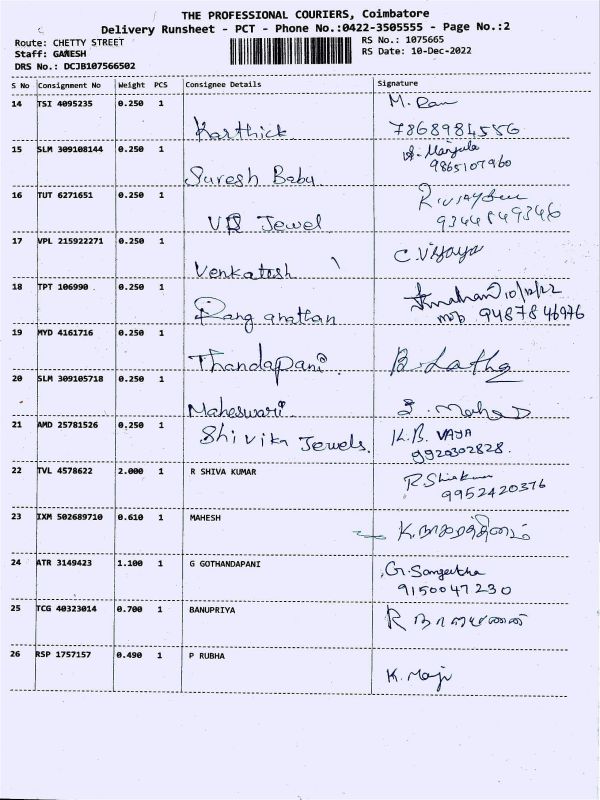 THE PROFESSIONAL COURIERS, Coimbatore
Delivery Runsheet - PCT - Phone No.:0422-3505555 - Page No.:2
Route: CHETTY STREET
RS No.: 1075665
Staff: GANESH
RS Date: 10-Dec-2022
DRS No.: DCJB107566502
S No Consignment No Weight PCS Consignee Details Signature
14 TSI 4095235 0.250 1 Karthick M. Ram
7868984556
15 SLM 309108144 0.250 1 Suresh Babu A. Manjula
9865107960
16 TUT 6271651 0.250 1 VB Jewel
9344849346
17 VPL 215922271 0.250 1 Venkatesh C. Vijaya
18 TPT 106990 0.250 1 Ranganathan 10/12/22
mob 9487846976
19 MYD 4161716 0.250 1 Thandapani. B. Latha
20 SLM 309105718 0.250 1 Maheswari
21 AMD 25781526 0.250 1 Shivika Jewels. K.B. VAJA
9920302828.
22 TVL 4578622 2.000 1 R SHIVA KUMAR
9952420376
23 IXM 502689710 0.610 1 MAHESH
24 ATR 3149423 1.100 1 G GOTHANDAPANI G. Sangeetha
9150047230
25 TCG 40323014 0.700 1 BANUPRIYA
26 RSP 1757157 0.490 1 P RUBHA